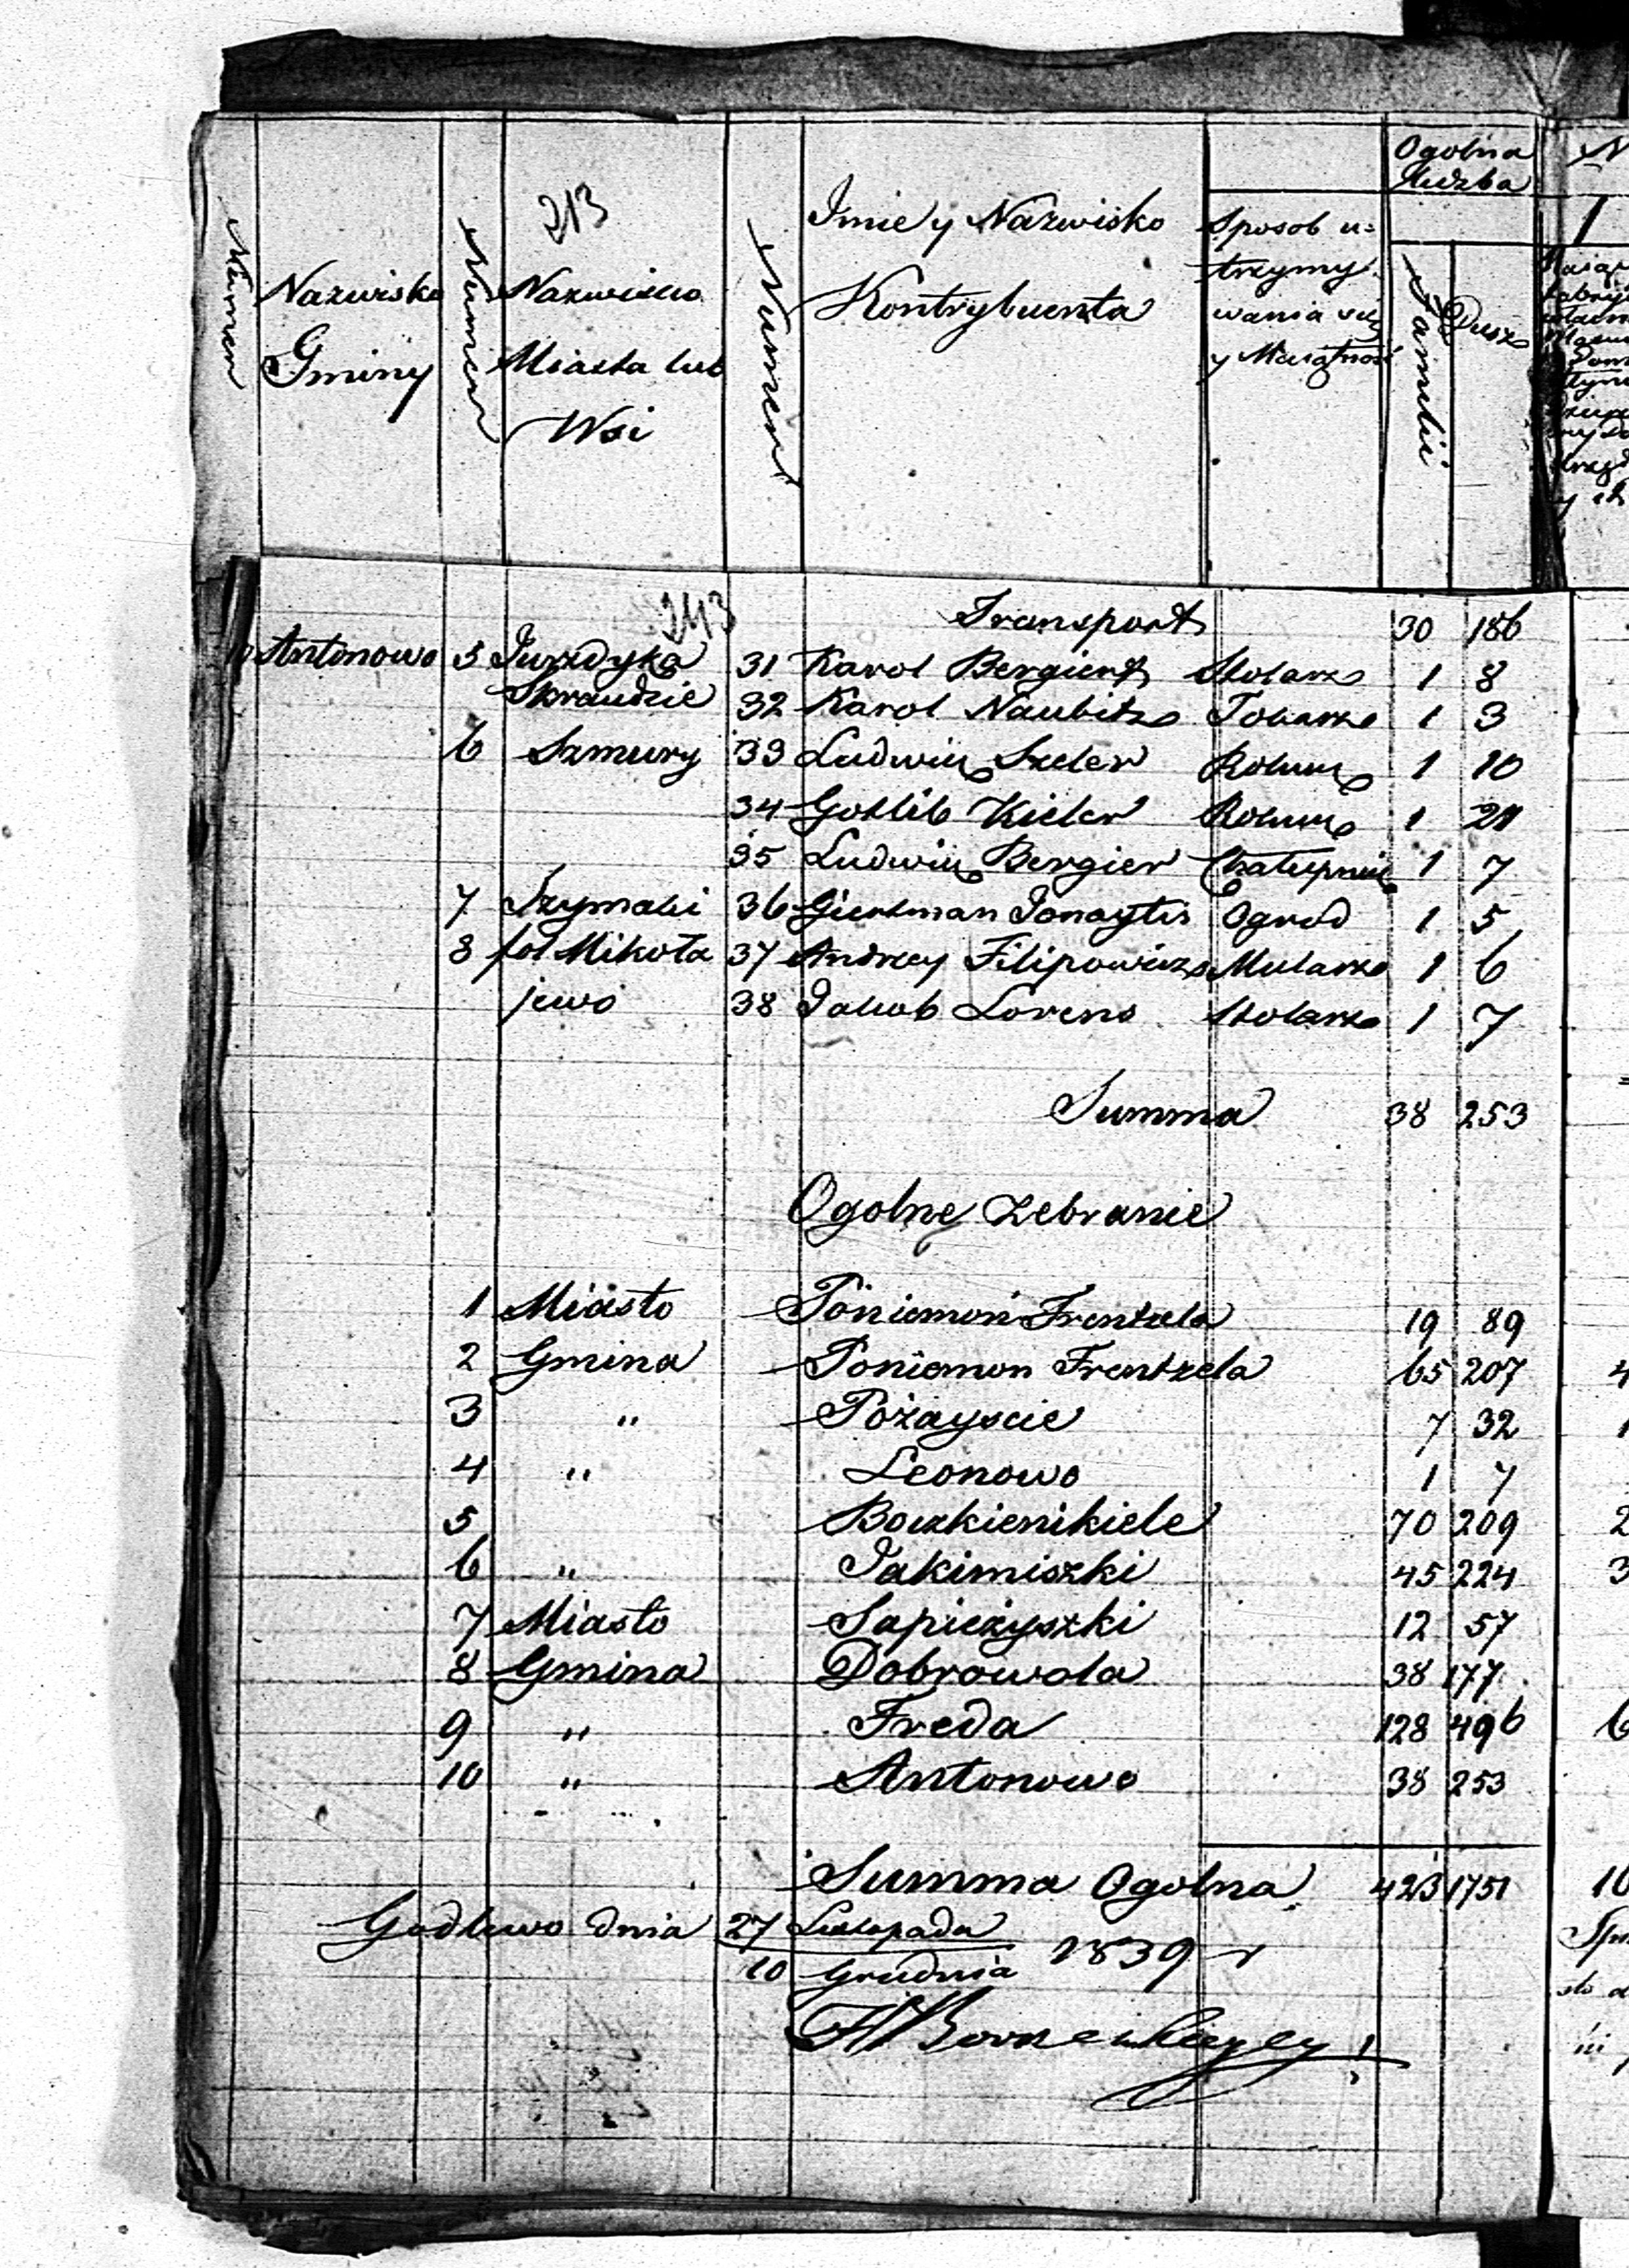 Ogolna
Liczba
213
Imie y Nazwisko
Kontrybuenta
Numer
Nazwisko
Gminy
Numer
Nazwisko
Miasta lub
Wsi
Numer
Sposob u=
trzymy
wania się
y Maiątność
Familii
Dusz
243
Transport 30 186
10 Antonowo 5 Juryzdyka 31 Karol Bergiert Stolarz 1 8
Skraudzie 32 Karol Naubitz Tokarz 1 3
6 Szmury 33 Ludwik Szeler Rolnik 1 10
34 Gotlib Kieler Rolnik 1 21
35 Ludwik Bergier Chałupnik 1 7
7 Szymaki 36 Giertman Jonaytis Ogrod 1 5
8 fol Mikoła 37 Andrzey Filipowicz Mularz 1 6
jewo 38 Jakob Lorens Stolarz 1 7
Summa 38 253
Ogolne Zebranie
1 Miasto Poniemoń Frentzela 19 89
2 Gmina Poniemon Frentzela 65 207
3 " Pożayscie 7 32
4 " Leonowo 1 7
5 Bouzkienikiele 70 209
6 " Jakimiszki 45 224
7 Miasto Sapieżyszki 12 57
8 Gmina Dobrowola 38 177
9 " Freda 128 496
10 " Antonowo 38 253
Summa Ogolna 423 1751
Godlewo dnia 27 Listopada
10 Grudnia 1839 r